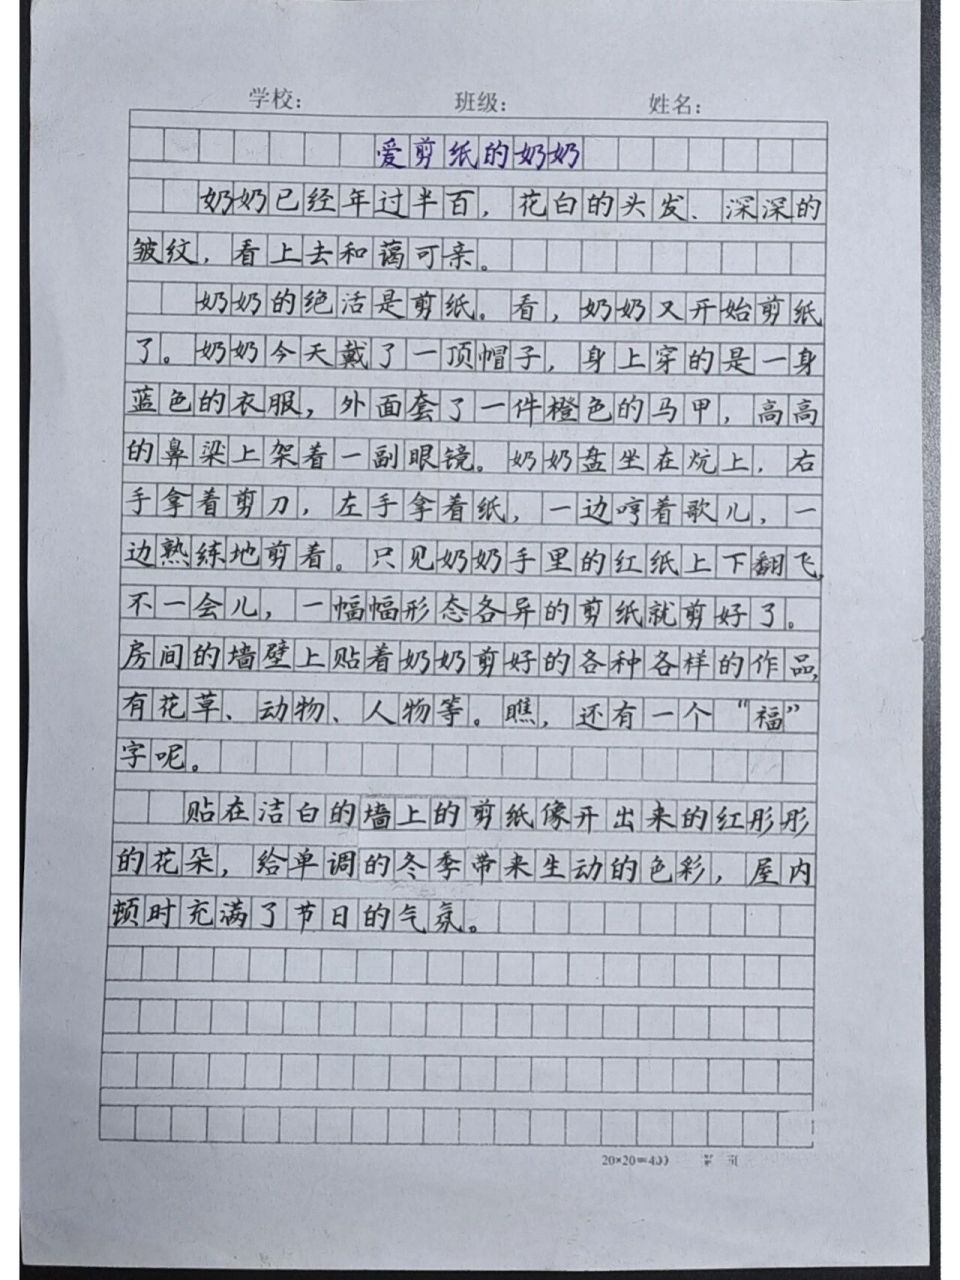 学校： 班级： 姓名：
爱剪纸的奶奶
奶奶已经年过半百，花白的头发、深深的
皱纹，看上去和蔼可亲。
奶奶的绝活是剪纸。看，奶奶又开始剪纸
了。奶奶今天戴了一顶帽子，身上穿的是一身
蓝色的衣服，外面套了一件橙色的马甲，高高
的鼻梁上架着一副眼镜。奶奶盘坐在炕上，右
手拿着剪刀，左手拿着纸，一边哼着歌儿，一
边熟练地剪着。只见奶奶手里的红纸上下翻飞，
不一会儿，一幅幅形态各异的剪纸就剪好了。
房间的墙壁上贴着奶奶剪好的各种各样的作品，
有花草、动物、人物等。瞧，还有一个“福”
字呢。
贴在洁白的墙上的剪纸像开出来的红彤彤
的花朵，给单调的冬季带来生动的色彩，屋内
顿时充满了节日的气氛。
20×20=400 第 页